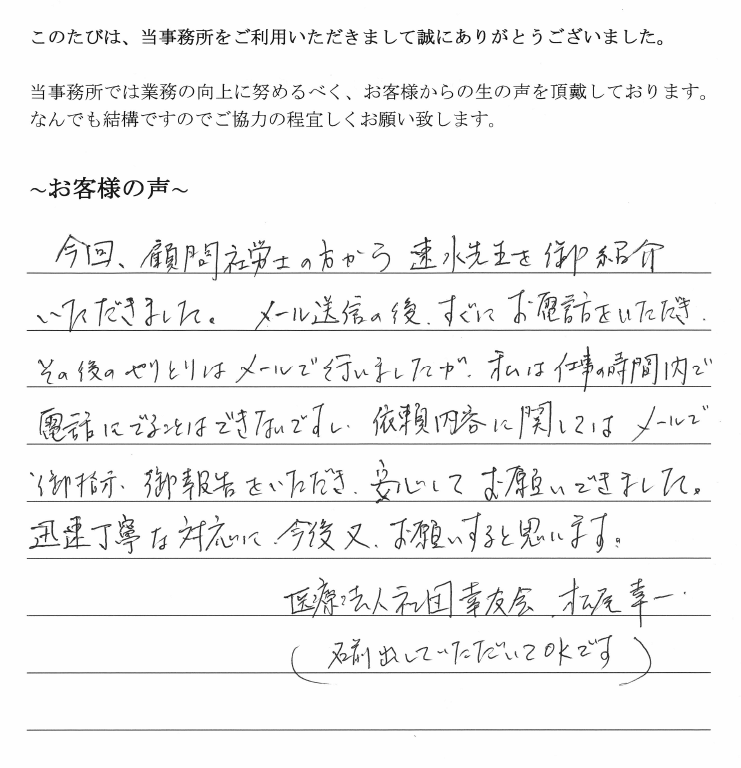 このたびは、当事務所をご利用いただきまして誠にありがとうございました。
当事務所では業務の向上に努めるべく、お客様からの生の声を頂戴しております。
なんでも結構ですのでご協力の程宜しくお願い致します。
~お客様の声~
今回、顧問社労士の方から 速水先生を御紹介
いただきました。メール送信の後、すぐに お電話をいただき、
その後のやりとりはメールで行いましたが、私は仕事の時間内で
電話にでることはできないですし、依頼内容に関してはメールで
御指示、御報告をいただき、安心して お願いできました。
迅速丁寧な対応に、今後又、お願いすると思います。
医療法人社団幸友会 松尾幸一
(名前出していただいてOKです)